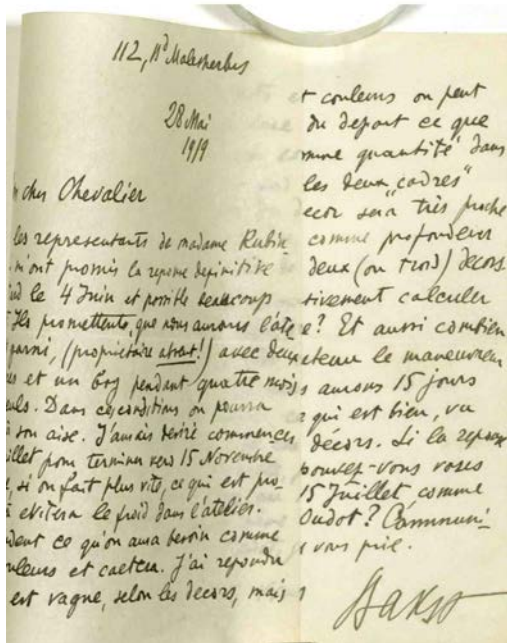 112, Bd Malesherbes
28 Mai
1919
cher Chevalier
les representants de madame Rubin
m'ont promis la reponse definitive
le 4 Juin et possible beaucoup
Ils promettent, que nous aurons l'ate
(proprietaire absent!) avec deux
et un boy pendant quatre mois
Dans ces conditions on pourra
son aise. J'aurais desiré commencer
pour terminer vers 15 Novembre
si on fait plus vite, ce qui est pro-
evitera le froid dans l'atelier.
ce qu'on aura besoin comme
couleurs et caetera. J'ai repondu
est vague, selon les decors, mais
t couleurs on peut
du depart ce que
comme quantité dans
les deux "cadres"
decor sera très proche
comme profondeur
deux (ou trois) decors
sivement calculer
e? Et aussi combien
le maneuvreur
s aurons 15 jours
qui est bien, vu
décors. Si la reponse
pouvez-vous
15 Juillet comme
Oudot? Communi-
vous prie.
Bakst